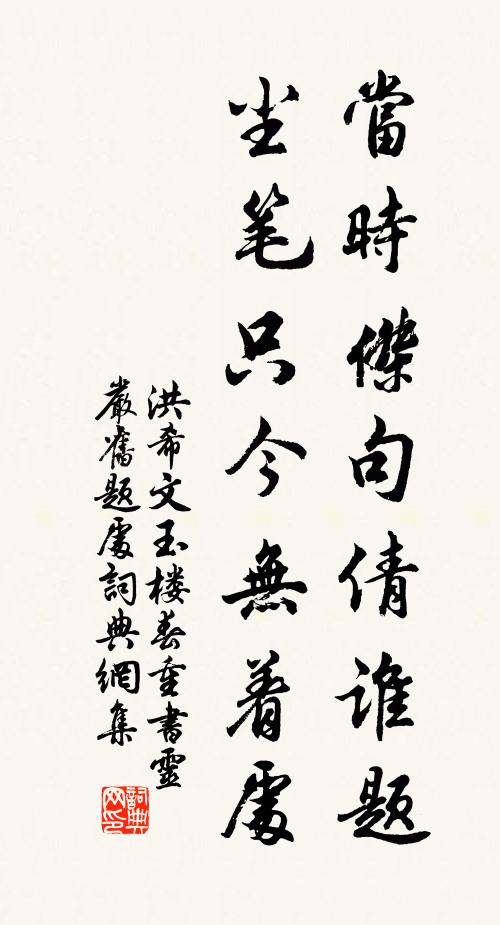 當時傑句倩誰題
尘笔只今無着處
洪希文玉楼春重書靈
嚴舊題處詞典網集
詞典网印